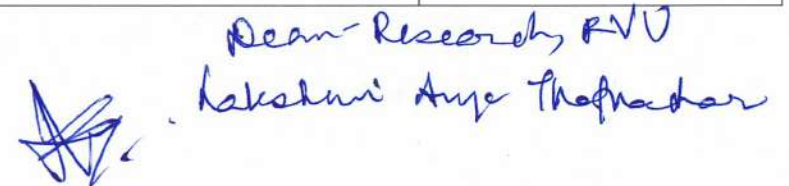 Dean-Research, RVU
Lakshmi Arya Thathachar